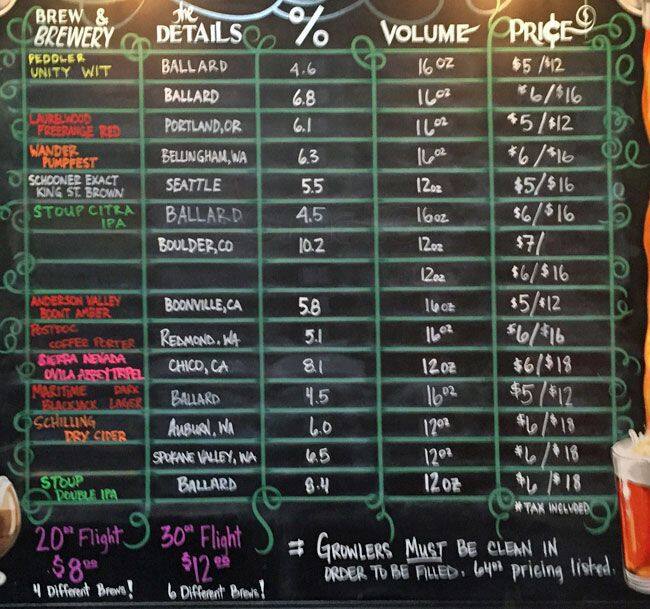 BREW & BREWERY the DETAILS % VOLUME PRICE
PEDDLER UNITY WIT BALLARD 4.6 16oz $5/$12
BALLARD 6.8 16oz $6/$16
LAURELWOOD FREERANGE RED PORTLAND, OR 6.1 16oz $5/$12
WANDER PUMPFEST BELLINGHAM, WA 6.3 16oz $6/$16
SCHOONER EXACT KING ST. BROWN SEATTLE 5.5 12oz $5/$16
STOUP CITRA IPA BALLARD 4.5 16oz $6/$16
BOULDER, CO 10.2 12oz $7/
12oz $6/$16
ANDERSON VALLEY BOONT AMBER BOONVILLE, CA 5.8 16oz $5/$12
POSTDOC COFFEE PORTER REDMOND, WA 5.1 16oz $6/$16
SIERRA NEVADA OVILA ABBEY TRIPEL CHICO, CA 8.1 12oz $6/$18
MARITIME DARK BLACKJACK LAGER BALLARD 4.5 16oz $5/$12
SCHILLING DRY CIDER AUBURN, WA 6.0 12oz $6/$18
SPOKANE VALLEY, WA 6.5 12oz $6/$18
STOUP DOUBLE IPA BALLARD 8.4 12oz $6/$18
*TAX INCLUDED
20oz Flight $8.00
4 Different Brews!
30oz Flight $12.00
6 Different Brews!
GROWLERS MUST BE CLEAN IN
ORDER TO BE FILLED. 64oz pricing listed.